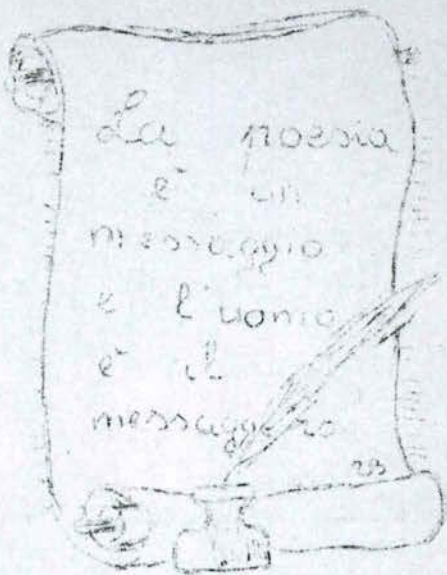 La poesia
è un
messaggio
e l'uomo
è il
messaggero